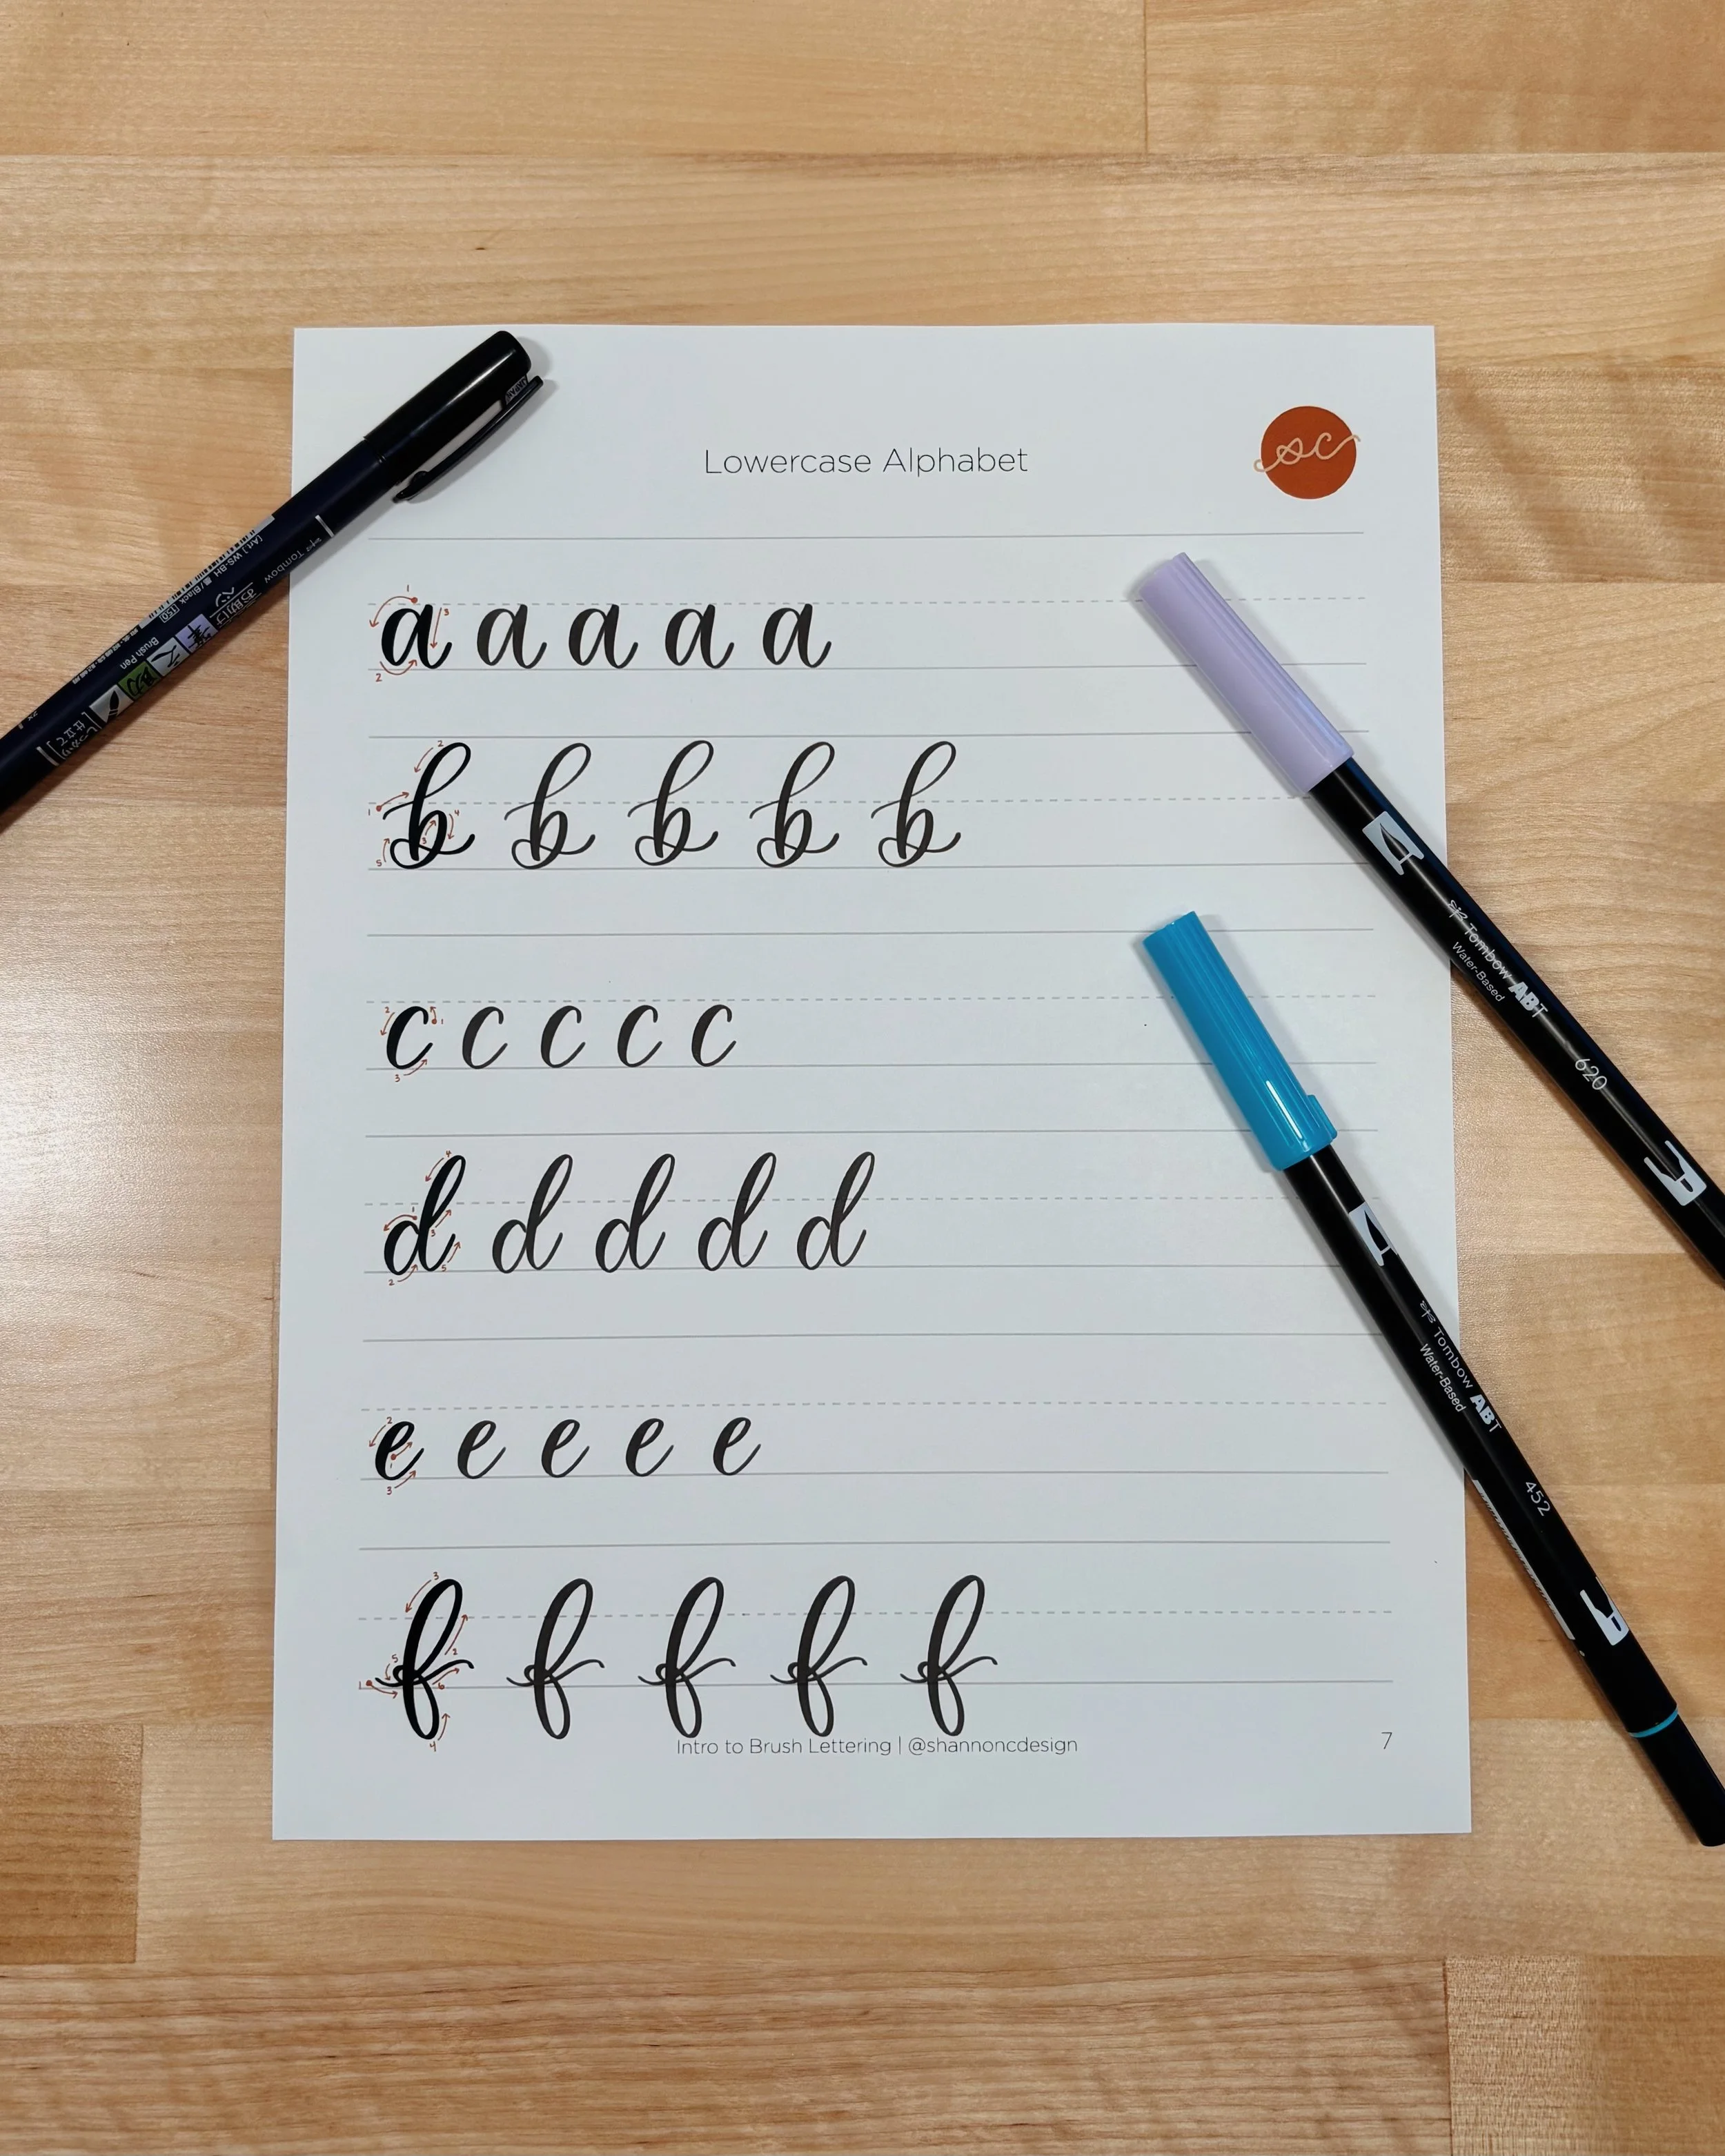 Lowercase Alphabet
sc
a a a a a
b b b b b
c c c c c
d d d d d
e e e e e
f f f f f
Intro to Brush Lettering | @shannoncdesign
7
JAPAN
Tombow
[Art.] WS-BH /Black
Brush Pen
Tombow ABT
Water-Based
620
Tombow ABT
Water-Based
452